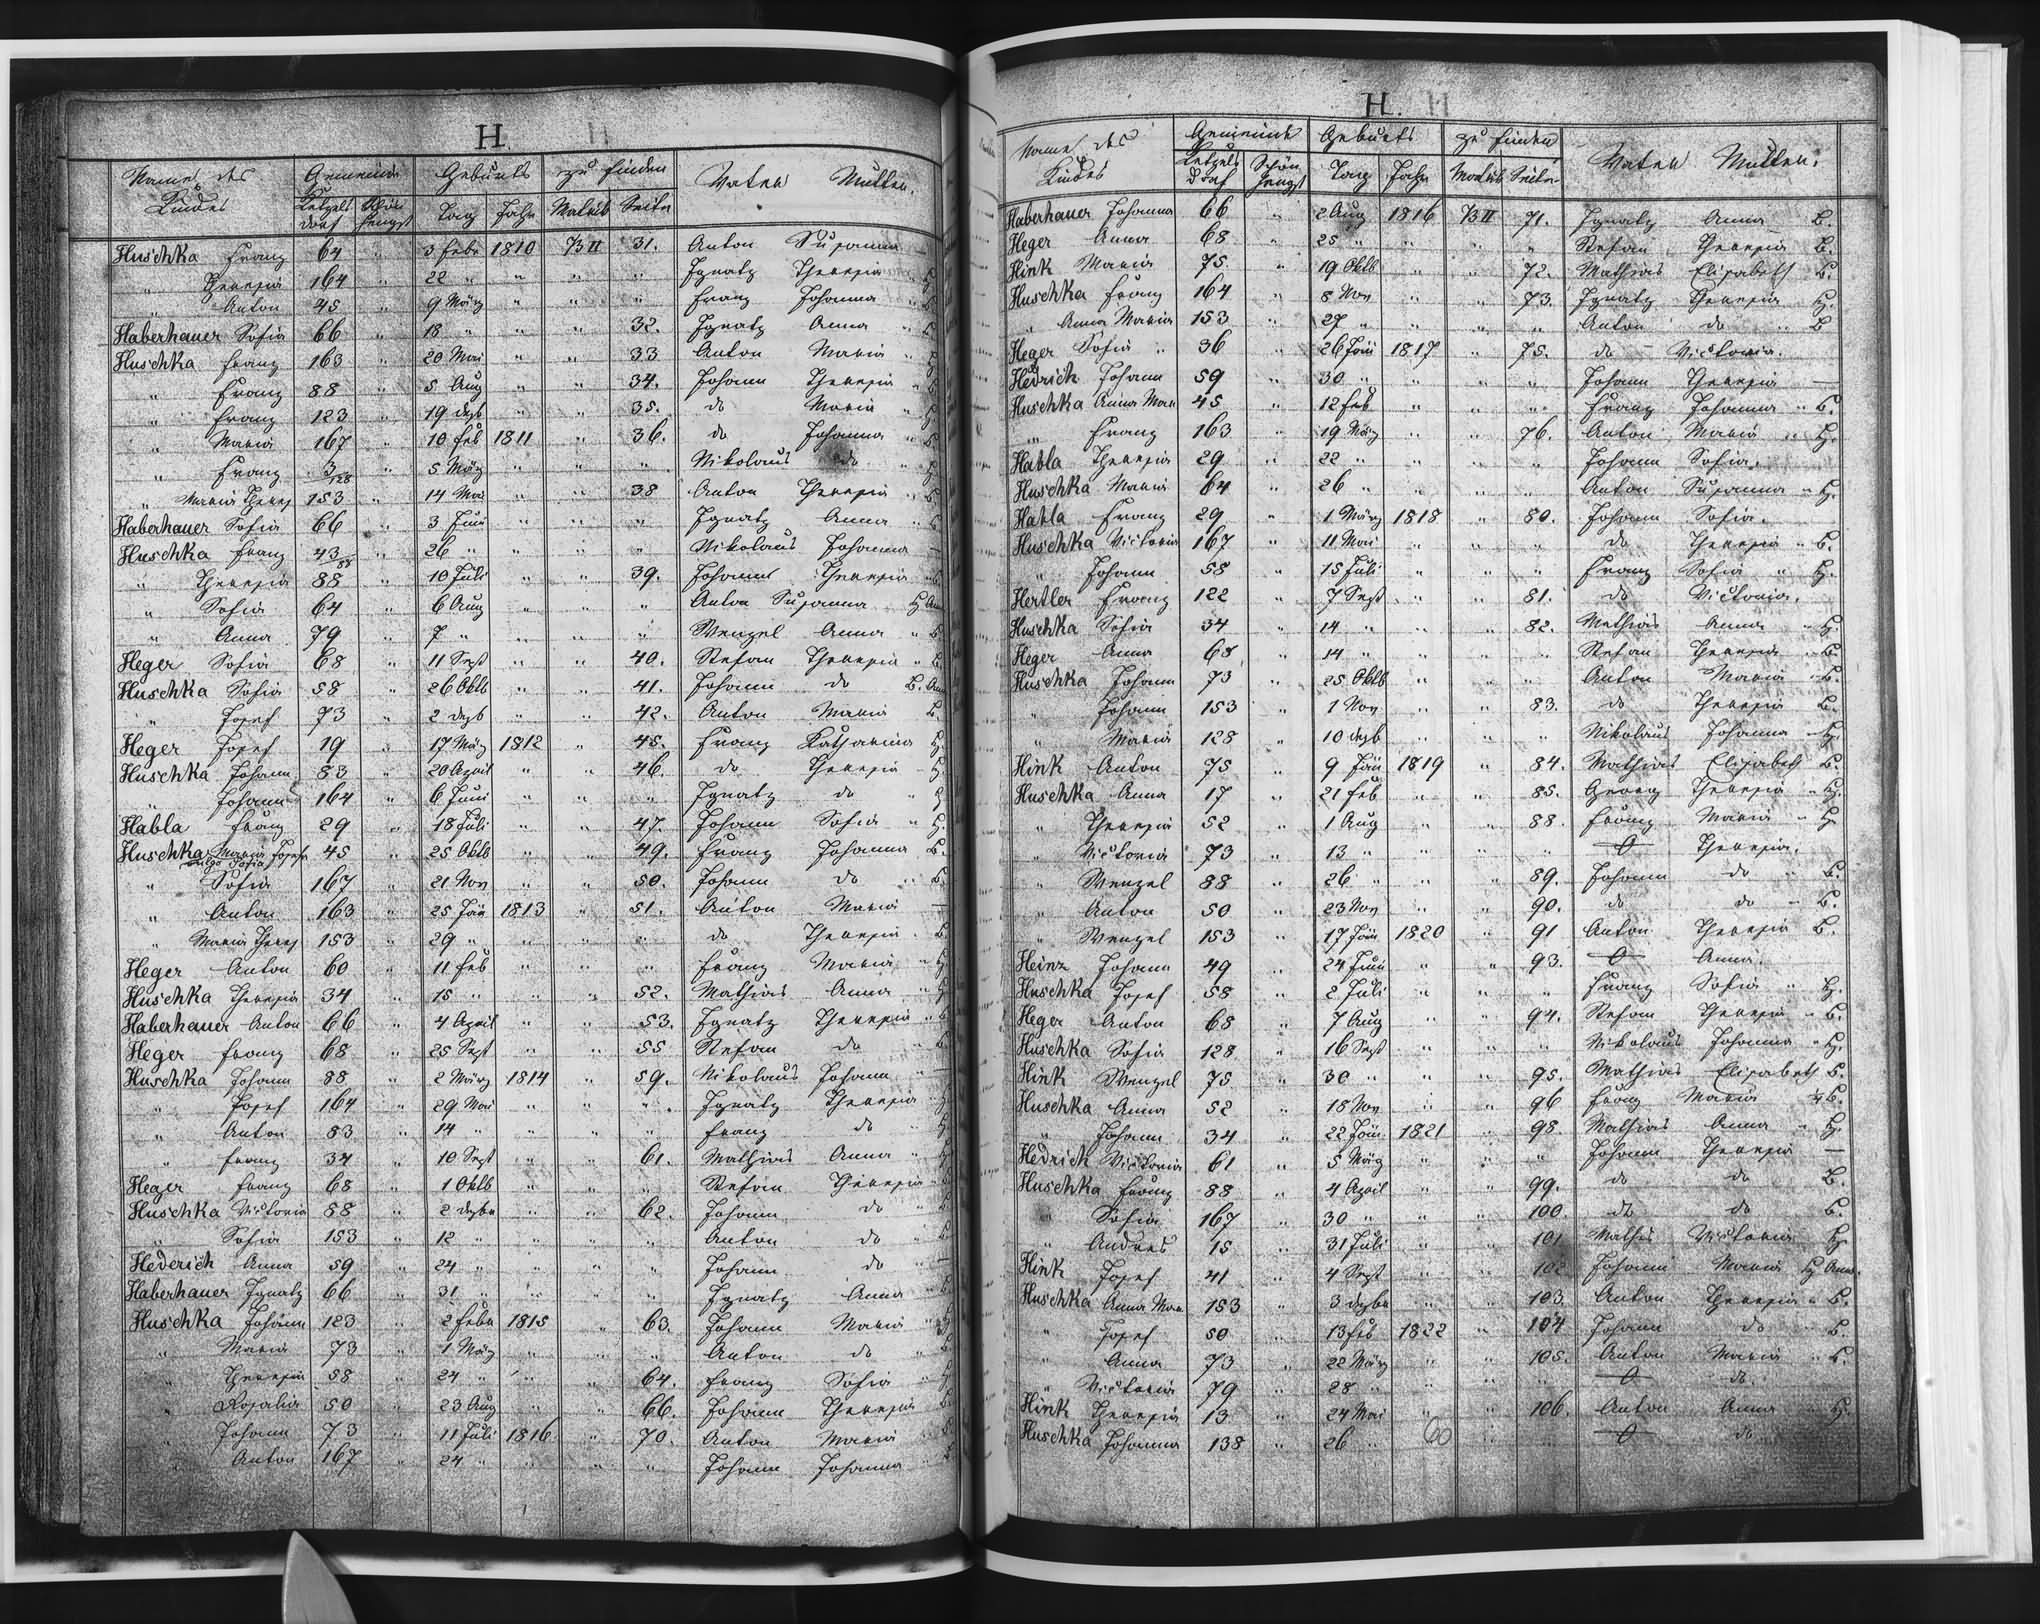 H.
Name des Kindes Gemeinde Geburts zu finden Vater Mutter.
Ketzelsdorf Schönhengst Tag Jahr Matrik Seite
Huschka Franz 64 " 3 Febr 1810 B II 31. Anton Susanna
" Theresia 164 " 22 " " " " Ignatz Theresia "
" Anton 45 " 9 März " " " Franz Johanna "
Haberhauer Sofia 66 " 18 " " " 32. Ignatz Anna "
Huschka Franz 163 " 20 Mai " " 33 Anton Maria "
" Franz 88 " 5 Aug " " 34. Johann Theresia "
" Franz 123 " 19 dezb " " 35. do Maria "
" Maria 167 " 10 Feb 1811 " 36. do Johanna "
" Franz 3/128 " 5 März " " " Nikolaus do "
" Maria Theres 153 " 14 Mai " " 38 Anton Theresia "
Haberhauer Sofia 66 " 3 Juni " " " Ignatz Anna "
Huschka Franz 43/88 " 26 " " " " Nikolaus Johanna —
" Theresia 88 " 10 Juli " " 39. Johann Theresia "
" Sofia 64 " 6 Aug " " " Anton Susanna H. Ann
" Anna 79 " 7 " " " " Wenzel Anna " B
Heger Sofia 68 " 11 Sept " " 40. Stefan Theresia " B.
Huschka Sofia 58 " 26 Oktb " " 41. Johann do B. Ann
" Josef 73 " 2 dezb " " 42. Anton Maria B.
Heger Josef 19 " 17 März 1812 " 45. Franz Katharina H.
Huschka Johann 83 " 20 April " " 46. do Theresia " H.
" Johann 164 " 6 Juni " " " Ignatz do " H
Habla Franz 29 " 18 Juli " " 47. Johann Sofia " H.
Huschka Maria Josefa 45 " 25 Oktb " " 49. Franz Johanna B.
" Sofia 167 " 21 Nov " " 50. Johann do " B.
" Anton 163 " 25 Jän 1813 " 51. Anton Maria —
" Maria Theres 153 " 29 " " " " do Theresia " B.
Heger Anton 60 " 11 Feb " " " Franz Maria " H
Huschka Theresia 34 " 15 " " " 52. Mathias Anna " H
Haberhauer Anton 66 " 4 April " " 53. Ignatz Theresia " B
Heger Franz 68 " 25 Sept " " 55 Stefan do " B
Huschka Johann 88 " 2 März 1814 " 59. Nikolaus Johann " —
" Josef 164 " 29 Mai " " " Ignatz Theresia " H
" Anton 83 " 14 " " " " Franz do H
" Franz 34 " 10 Sept " " 61. Mathias Anna " H
Heger Franz 68 " 1 Oktb " " " Stefan Theresia " B
Huschka Victoria 88 " 2 dezbr " " 62. Johann do " B
" Sofia 153 " 12 " " " " Anton do " B
Hederich Anna 59 " 24 " " " " Johann do " —
Haberhauer Ignatz 66 " 31 " " " " Ignatz Anna " B
Huschka Johann 123 " 2 Febr 1815 " 63. Johann Maria "
" Maria 73 " 1 März " " " Anton do " B
" Theresia 58 " 24 " " " 64. Franz Sofia " H
" Rosalia 50 " 23 Aug " " 66. Johann Theresia B
" Johann 73 " 11 Juli 1816 " 70. Anton Maria "
" Anton 167 " 24 " " " " Johann Johanna "
H.
Name des Kindes Gemeinde Geburts zu finden Vater Mutter.
Ketzelsdorf Schönhengst Tag Jahr Matrik Seite
Haberhauer Johanna 66 " 2 Aug 1816 B II 71. Ignatz Anna B.
Heger Anna 68 " 25 " " " " Stefan Theresia B.
Hink Maria 75 " 19 Oktb " " 72. Mathias Elisabeth B.
Huschka Franz 164 " 8 Nov " " 73. Ignatz Theresia H.
" Anna Maria 153 " 27 " " " " Anton do " B
Heger Sofia " 36 " 26 Jän 1817 " 75. do Victoria.
Hedrich Johann 59 " 30 " " " " Johann Theresia —
Huschka Anna Mar 45 " 12 Feb " " " Franz Johanna " B.
" Franz 163 " 19 März " " 76. Anton Maria " H.
Habla Theresia 29 " 22 " " " " Johann Sofia.
Huschka Maria 64 " 26 " " " " Anton Susanna " H.
Habla Franz 29 " 1 März 1818 " 80. Johann Sofia.
Huschka Victoria 167 " 11 Mai " " " do Theresia " B.
" Johann 58 " 15 Juli " " " Franz Sofia " H.
Hertler Franz 122 " 7 Sept " " 81. do Victoria.
Huschka Sofia 34 " 14 " " " 82. Mathias Anna " H.
Heger Anna 68 " 14 " " " " Stefan Theresia " B.
Huschka Johann 73 " 25 Oktb " " " Anton Maria " B.
" Johann 153 " 1 Nov " " 83. do Theresia B.
" Maria 128 " 10 dezb " " " Nikolaus Johanna " H.
Hink Anton 75 " 9 Jän 1819 " 84. Mathias Elisabeth B.
Huschka Anna 17 " 21 Feb " " 85. Georg Theresia " H.
" Theresia 52 " 1 Aug " " 88. Franz Maria " H
" Victoria 73 " 13 " " " " O Theresia.
" Wenzel 88 " 26 " " " 89. Johann do " B.
" Anton 50 " 23 Nov " " 90. do do " B.
" Wenzel 153 " 17 Jän 1820 " 91 Anton Theresia B.
Heinz Johann 49 " 24 Juni " " 93. O Anna.
Huschka Josef 58 " 2 Juli " " " Franz Sofia " H.
Heger Anton 68 " 7 Aug " " 94. Stefan Theresia " B.
Huschka Sofia 128 " 16 Sept " " " Nikolaus Johanna " H.
Hink Wenzel 75 " 30 " " " 95. Mathias Elisabeth B.
Huschka Anna 52 " 18 Nov " " 96 Franz Maria " B.
" Johann 34 " 22 Jän 1821 " 98. Mathias Anna " H.
Hedrich Victoria 61 " 5 März " " " Johann Theresia —
Huschka Franz 88 " 4 April " " 99. do do B.
" Sofia 167 " 30 " " " 100. do do B.
" Andres 15 " 31 Juli " " 101 Mathes Victoria H.
Hink Josef 41 " 4 Sept " " 102 Johann Maria H Ann.
Huschka Anna Mar 153 " 3 dezbr " " 103. Anton Theresia " B.
" Josef 50 " 13 Feb 1822 " 104 Johann do " B.
" Anna 73 " 22 März " " 105. Anton Maria " B.
" Victoria 79 " 28 " " " " O do.
Hink Theresia 13 " 24 Mai " " 106. Anton Anna " H.
Huschka Johanna 138 " 26 " " " " O do
60